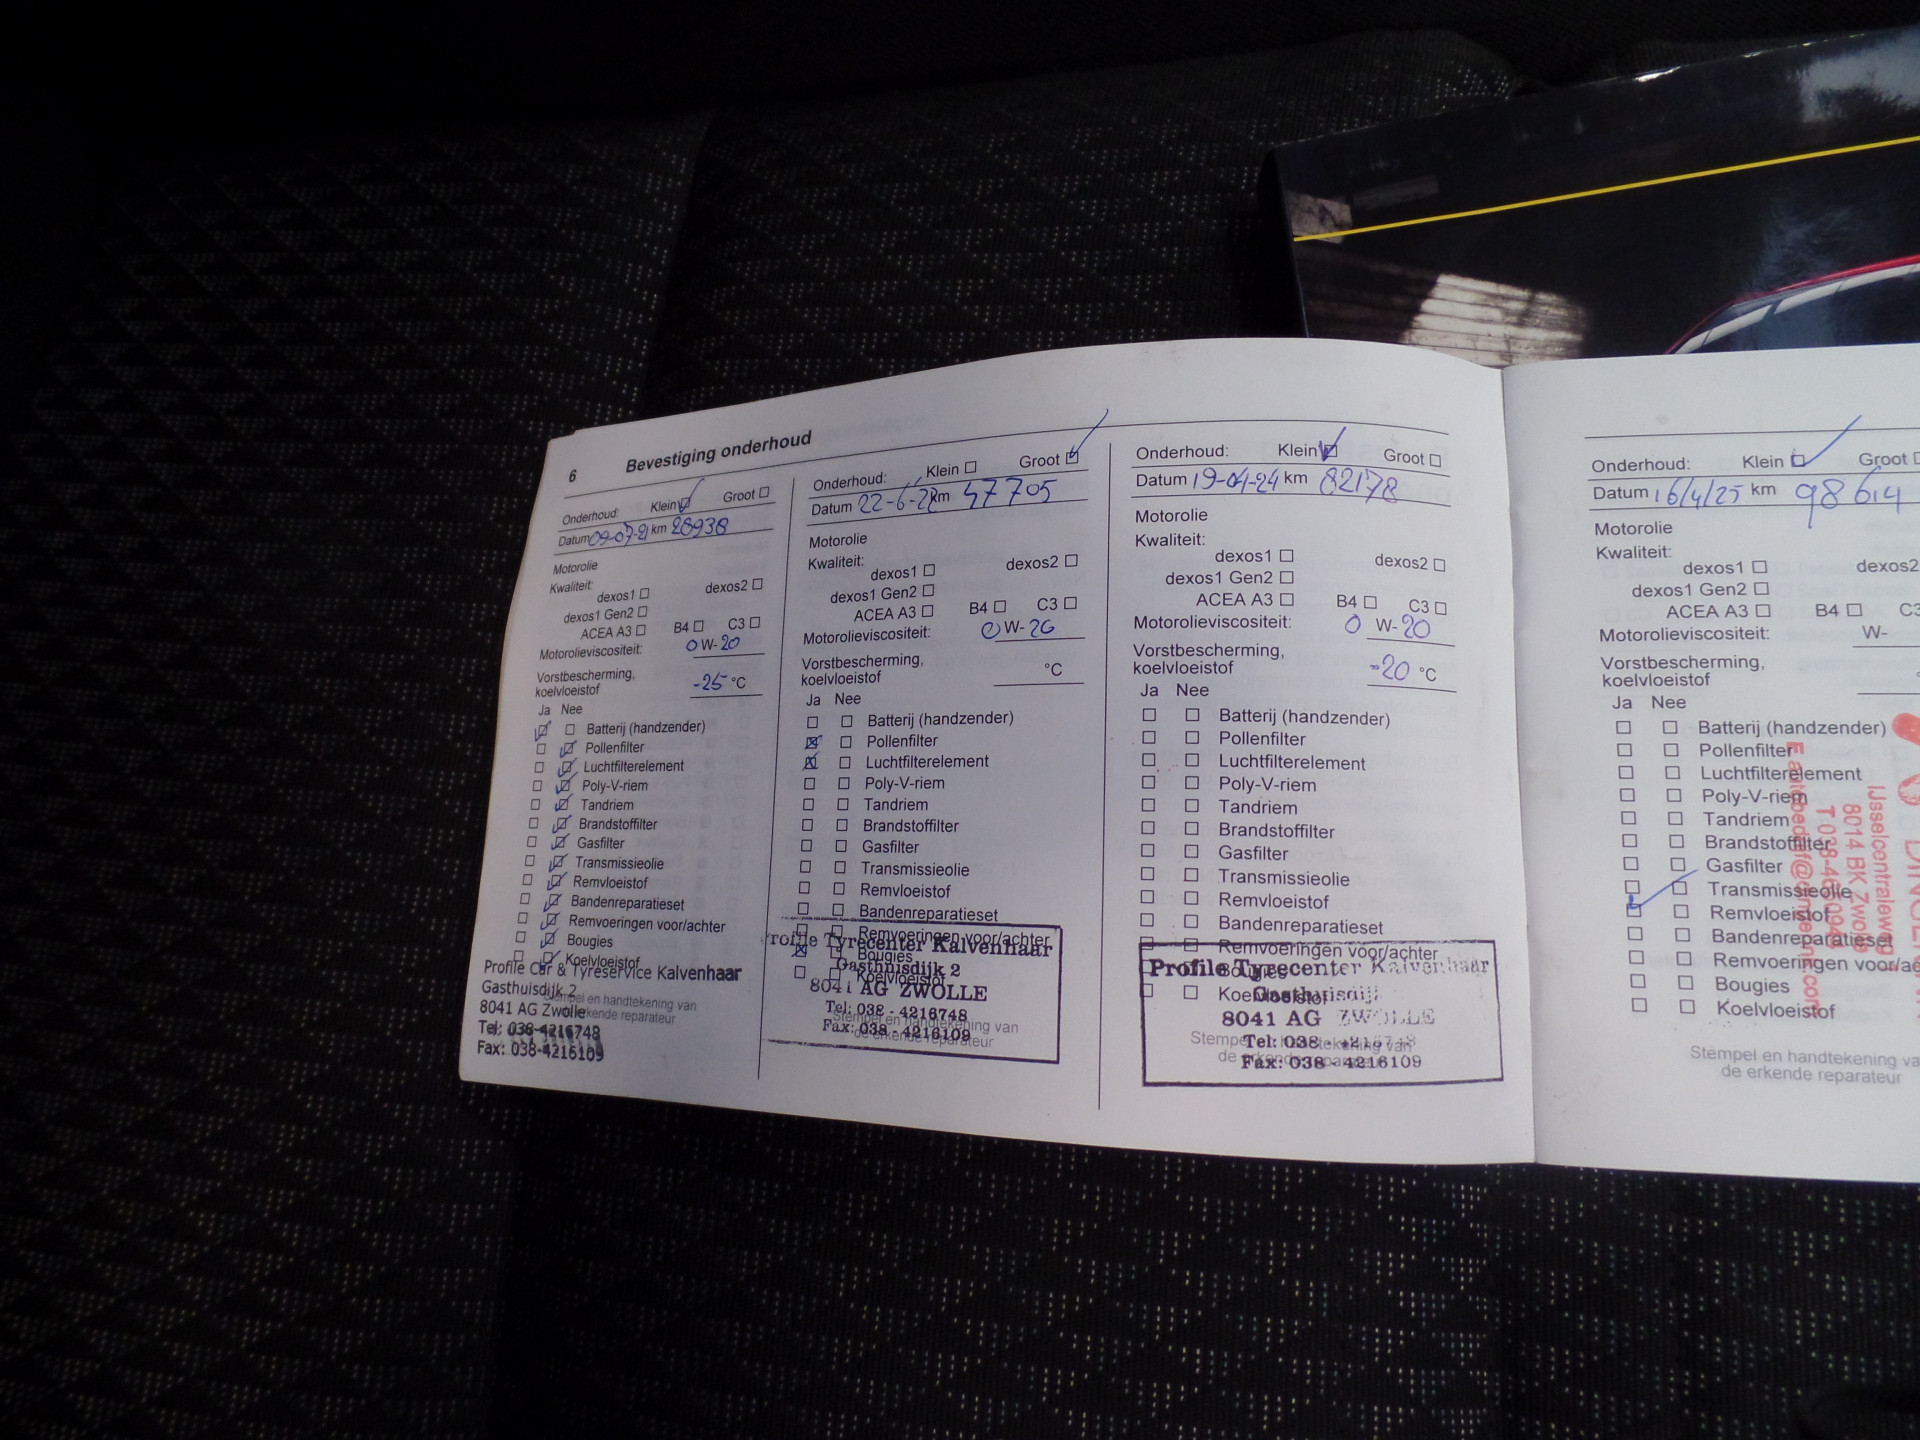 6 Bevestiging onderhoud
Onderhoud: Klein Groot
Datum 09-07-21 km 28938
Motorolie
Kwaliteit:
dexos1 dexos2
dexos1 Gen2
ACEA A3 B4 C3
Motorolieviscositeit: 0 W-20
Vorstbescherming,
koelvloeistof -25 °C
Ja Nee
Batterij (handzender)
Pollenfilter
Luchtfilterelement
Poly-V-riem
Tandriem
Brandstoffilter
Gasfilter
Transmissieolie
Remvloeistof
Bandenreparatieset
Remvoeringen voor/achter
Bougies
Koelvloeistof
Profile Car & Tyreservice Kalvenhaar
Gasthuisdijk 2
8041 AG Zwolle
Tel: 038-4216748
Fax: 038-4216109
Stempel en handtekening van
de erkende reparateur
Onderhoud: Klein Groot
Datum 22-6-22 km 47705
Motorolie
Kwaliteit:
dexos1 dexos2
dexos1 Gen2
ACEA A3 B4 C3
Motorolieviscositeit: 0 W-20
Vorstbescherming,
koelvloeistof °C
Ja Nee
Batterij (handzender)
Pollenfilter
Luchtfilterelement
Poly-V-riem
Tandriem
Brandstoffilter
Gasfilter
Transmissieolie
Remvloeistof
Bandenreparatieset
Remvoeringen voor/achter
Bougies
Koelvloeistof
Profile Tyrecenter Kalvenhaar
Gasthuisdijk 2
8041 AG ZWOLLE
Tel: 038 - 4216748
Fax: 038 - 4216109
Stempel en handtekening van
de erkende reparateur
Onderhoud: Klein Groot
Datum 19-04-24 km 82178
Motorolie
Kwaliteit:
dexos1 dexos2
dexos1 Gen2
ACEA A3 B4 C3
Motorolieviscositeit: 0 W-20
Vorstbescherming,
koelvloeistof -20 °C
Ja Nee
Batterij (handzender)
Pollenfilter
Luchtfilterelement
Poly-V-riem
Tandriem
Brandstoffilter
Gasfilter
Transmissieolie
Remvloeistof
Bandenreparatieset
Remvoeringen voor/achter
Bougies
Koelvloeistof
Profile Tyrecenter Kalvenhaar
Gasthuisdijk
8041 AG ZWOLLE
Tel: 038 - 4216748
Fax: 038 - 4216109
Stempel en handtekening van
de erkende reparateur
Onderhoud: Klein Groot
Datum 16/4/25 km 98614
Motorolie
Kwaliteit:
dexos1 dexos2
dexos1 Gen2
ACEA A3 B4 C3
Motorolieviscositeit: W-
Vorstbescherming,
koelvloeistof
Ja Nee
Batterij (handzender)
Pollenfilter
Luchtfilterelement
Poly-V-riem
Tandriem
Brandstoffilter
Gasfilter
Transmissieolie
Remvloeistof
Bandenreparatieset
Remvoeringen voor/ac
Bougies
Koelvloeistof
IJsselcentraleweg
8014 BK Zwolle
Stempel en handtekening va
de erkende reparateur